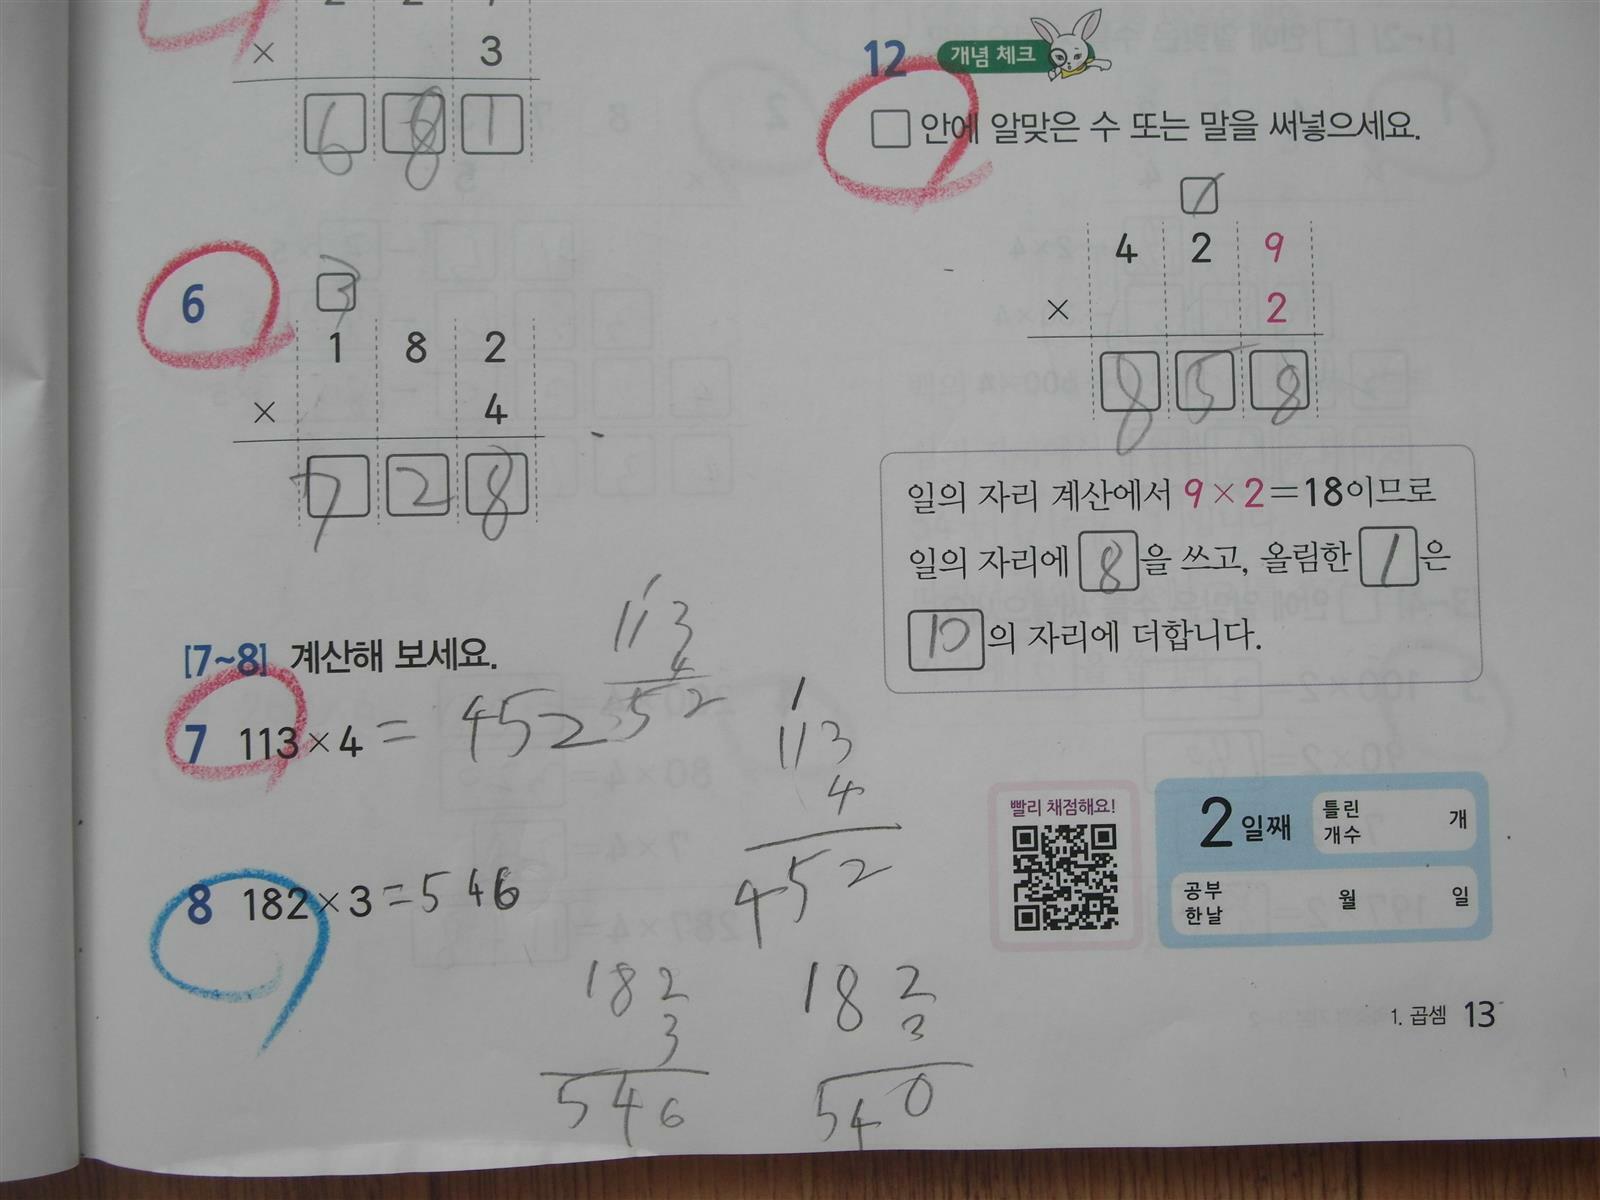 × 3
6 8 1
6
3
1 8 2
× 4
7 2 8
[7~8] 계산해 보세요.
113
4
52
7 113×4 = 452
113
4
452
8 182×3 = 546
182
3
546
182
3
540
12 개념 체크
□ 안에 알맞은 수 또는 말을 써넣으세요.
1
4 2 9
× 2
8 5 8
일의 자리 계산에서 9×2=18이므로
일의 자리에 8을 쓰고, 올림한 1은
10의 자리에 더합니다.
빨리 채점해요!
2일째 틀린 개수 개
공부한 날 월 일
1. 곱셈 13